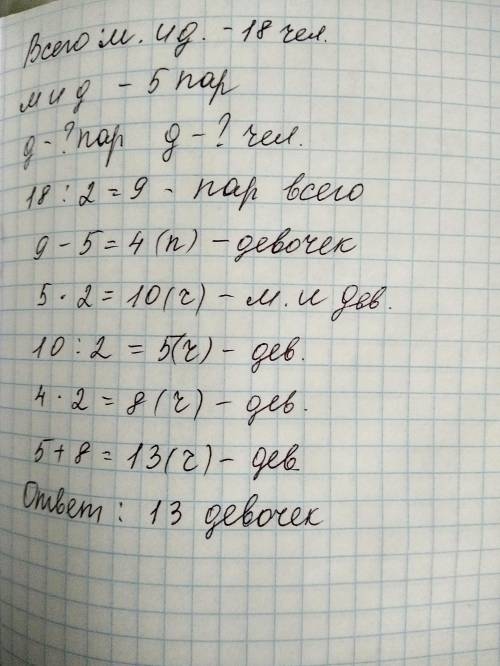 Всего м. и д. - 18 чел.
м и д - 5 пар
д - ? пар д - ? чел.
18 : 2 = 9 - пар всего
9 - 5 = 4 (п) - девочек
5 · 2 = 10 (ч) - м. и дев.
10 : 2 = 5(ч) - дев.
4 · 2 = 8 (ч) - дев.
5 + 8 = 13 (ч) - дев
Ответ : 13 девочек